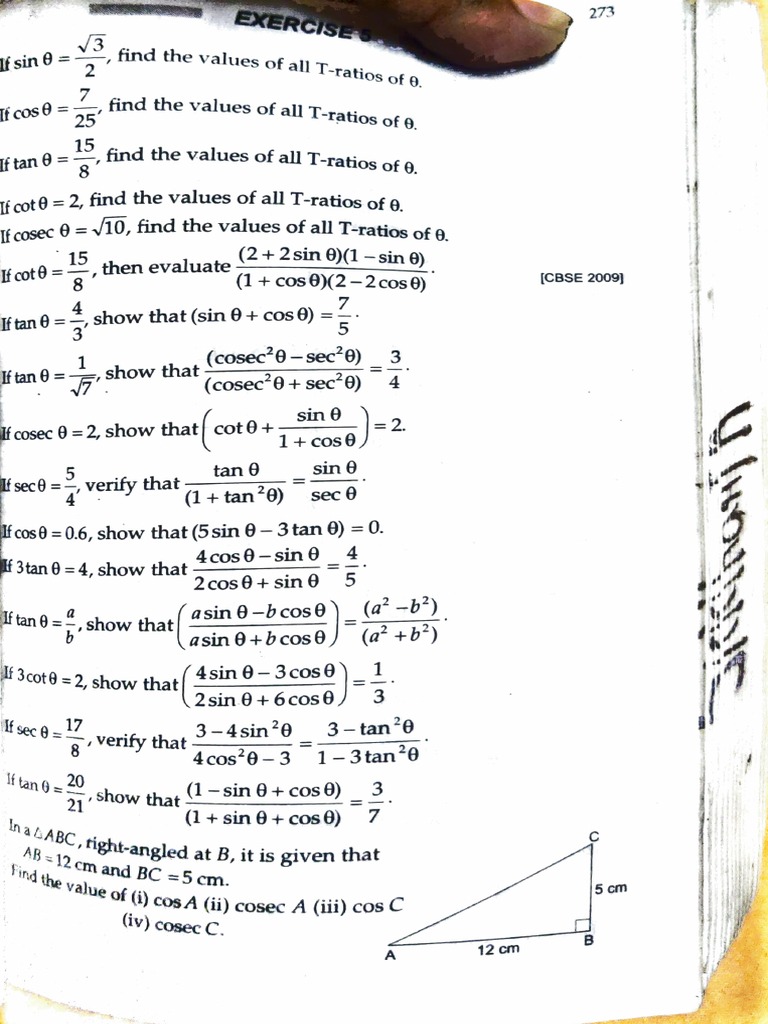 273
EXERCISE 5
If sin θ = √3/2, find the values of all T-ratios of θ.
If cos θ = 7/25, find the values of all T-ratios of θ.
If tan θ = 15/8, find the values of all T-ratios of θ.
If cot θ = 2, find the values of all T-ratios of θ.
If cosec θ = √10, find the values of all T-ratios of θ.
If cot θ = 15/8, then evaluate (2 + 2 sin θ)(1 − sin θ)/(1 + cos θ)(2 − 2 cos θ). [CBSE 2009]
If tan θ = 4/3, show that (sin θ + cos θ) = 7/5.
If tan θ = 1/√7, show that (cosec²θ − sec²θ)/(cosec²θ + sec²θ) = 3/4.
If cosec θ = 2, show that (cot θ + sin θ/(1 + cos θ)) = 2.
If sec θ = 5/4, verify that tan θ/(1 + tan²θ) = sin θ/sec θ.
If cos θ = 0.6, show that (5 sin θ − 3 tan θ) = 0.
If 3 tan θ = 4, show that (4 cos θ − sin θ)/(2 cos θ + sin θ) = 4/5.
If tan θ = a/b, show that ((a sin θ − b cos θ)/(a sin θ + b cos θ)) = (a² − b²)/(a² + b²).
If 3 cot θ = 2, show that ((4 sin θ − 3 cos θ)/(2 sin θ + 6 cos θ)) = 1/3.
If sec θ = 17/8, verify that (3 − 4 sin²θ)/(4 cos²θ − 3) = (3 − tan²θ)/(1 − 3 tan²θ).
If tan θ = 20/21, show that (1 − sin θ + cos θ)/(1 + sin θ + cos θ) = 3/7.
In a △ABC, right-angled at B, it is given that
AB = 12 cm and BC = 5 cm.
Find the value of (i) cos A (ii) cosec A (iii) cos C
(iv) cosec C.
C
5 cm
B
12 cm
A